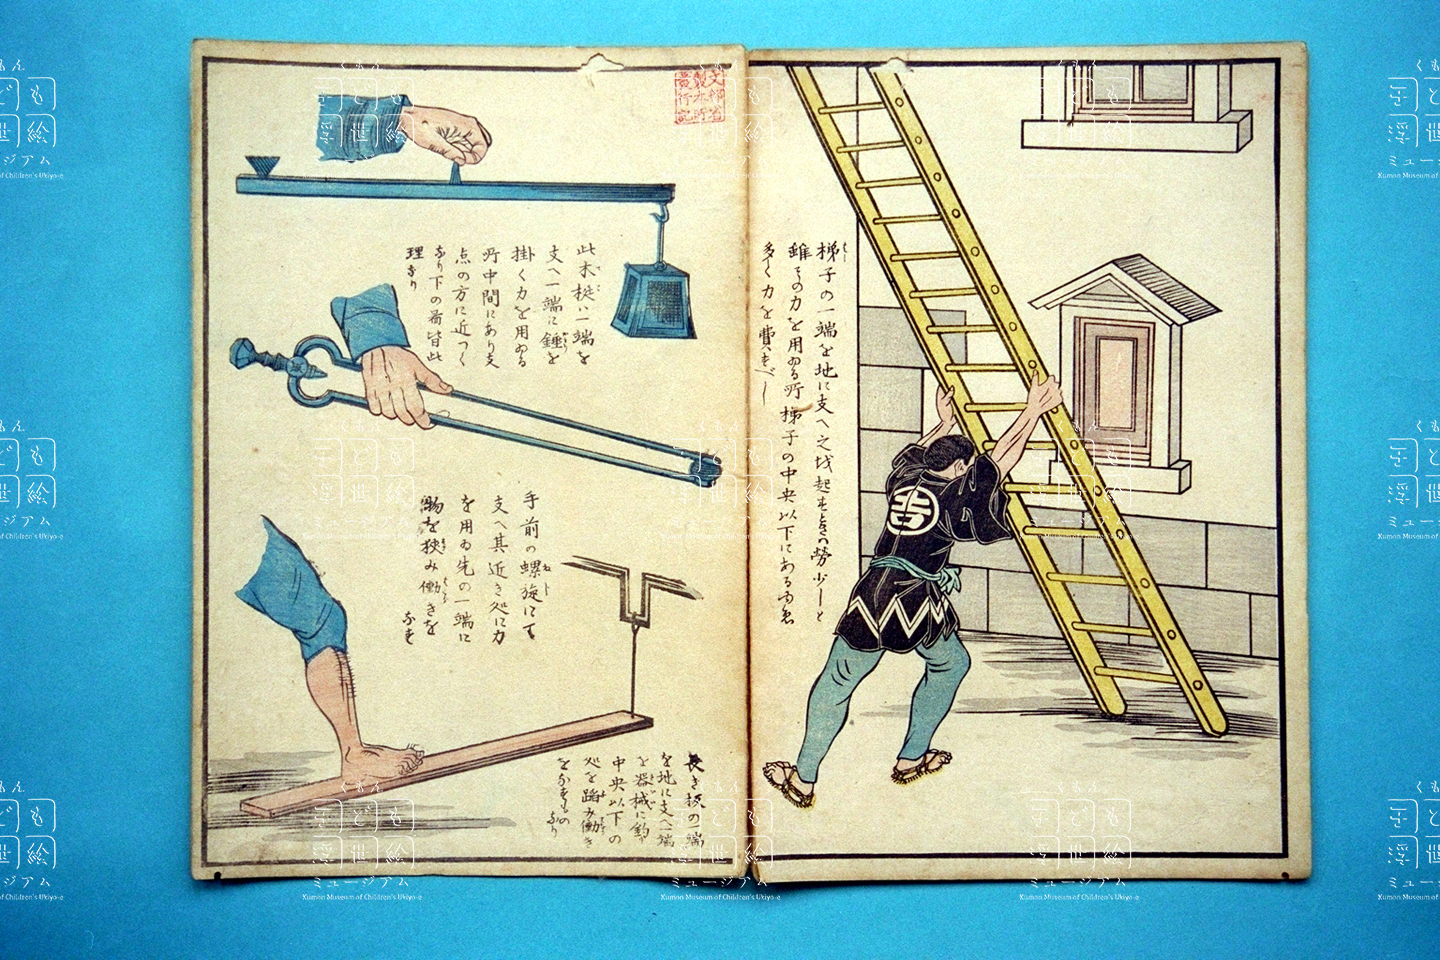 梯子の一端を地に支へ之を起すときハ勞少しと
雖もの力を用ゐる所梯子の中央以下にあるゆゑ
多く力を費すべし
文部省
製本所
發行記
此木梃ハ一端を
支へ一端に錘を
掛く力を用ゐる
所中間にあり支
点の方に近つく
なり下の圖皆此
理なり
手前の螺旋にて
支へ其近き処に力
を用ゐ先の一端に
物を挾み働きを
なす
長き板の一端
を地に支へ一端
を器械に釣り
中央以下の
処を踏み働き
をなすもの
なり
吉
くもん
子ども
浮世絵
ミュージアム
Kumon Museum of Children's Ukiyo-e